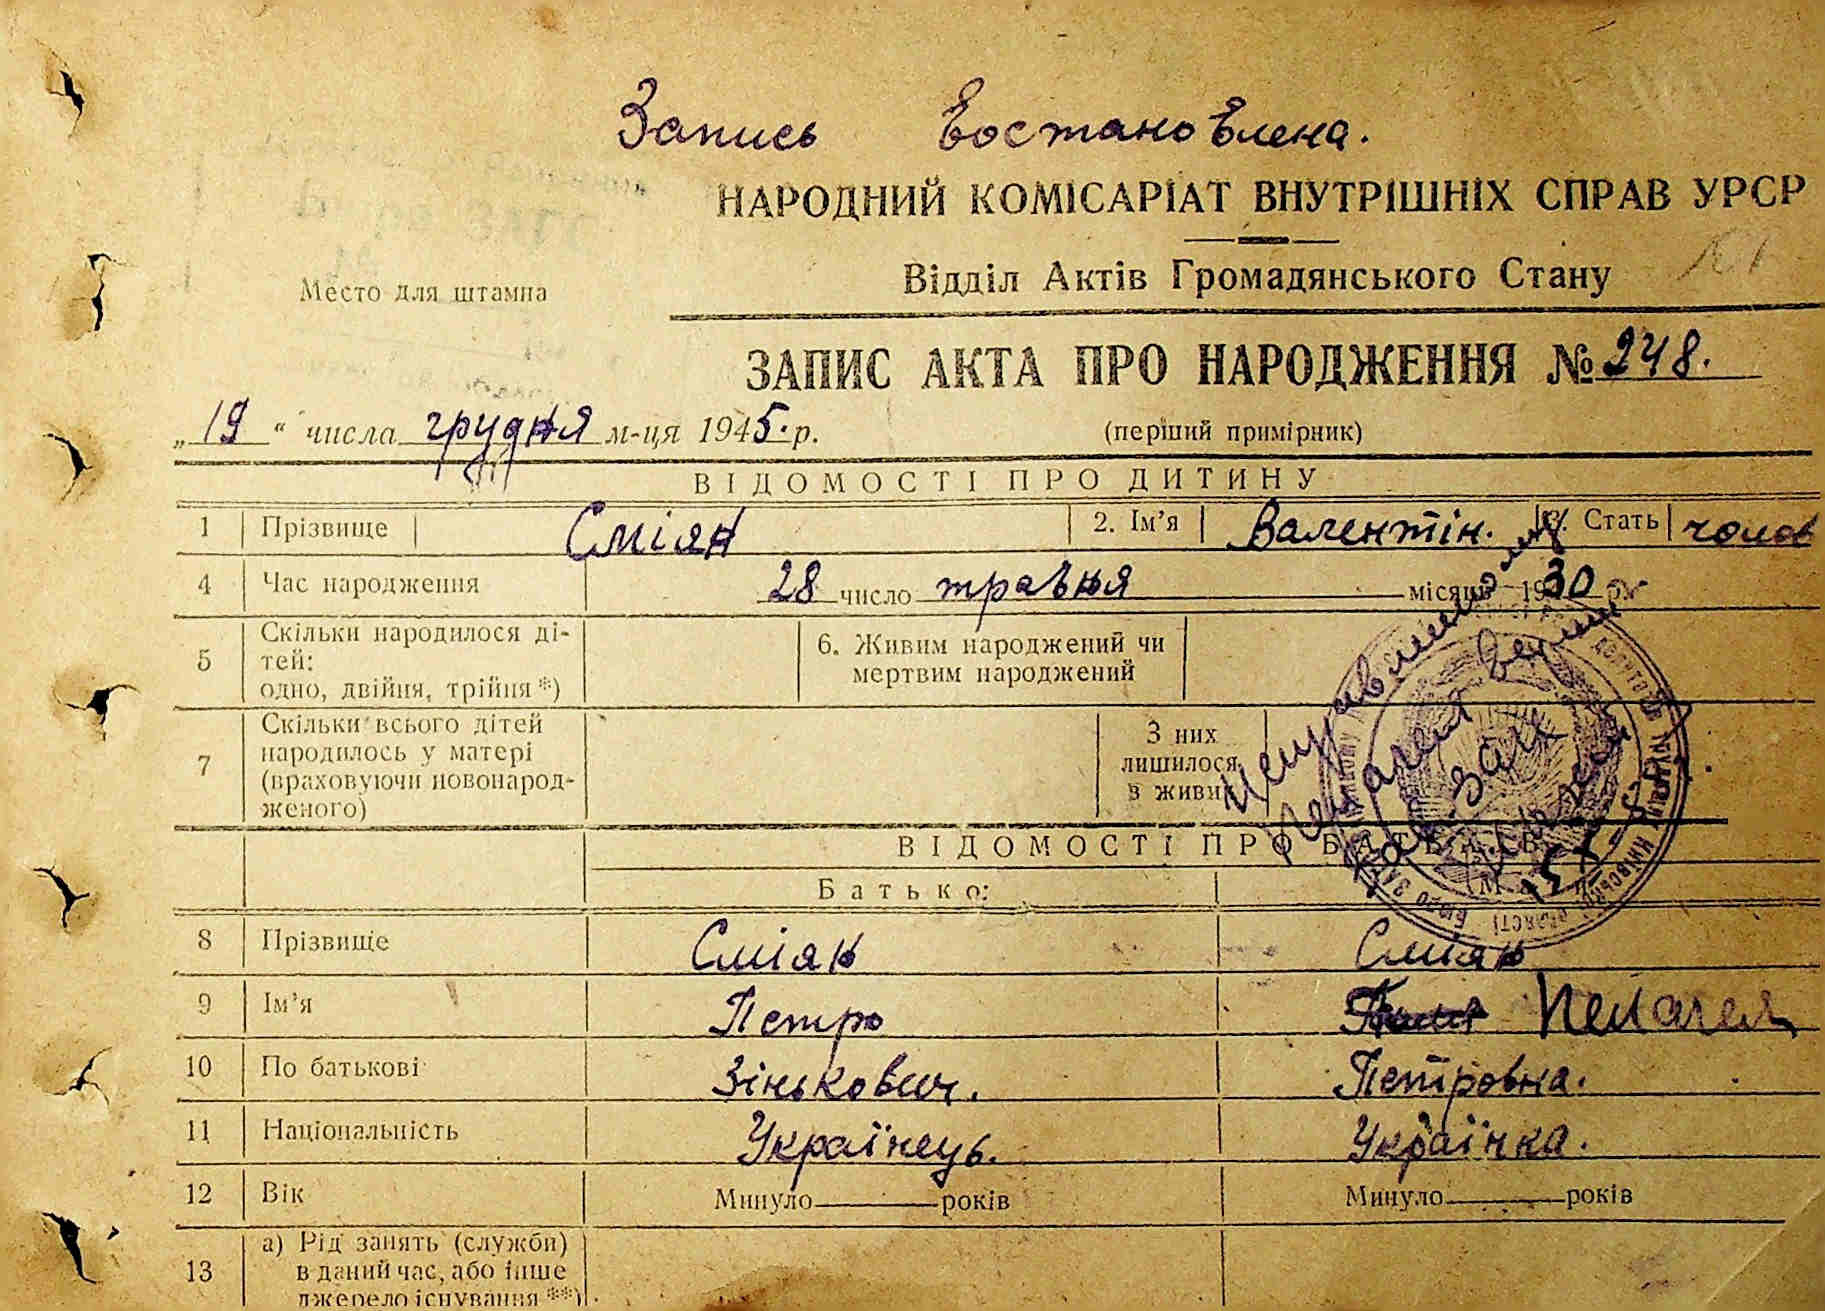 Запись востановлена.
НАРОДНИЙ КОМІСАРІАТ ВНУТРІШНІХ СПРАВ УРСР
Відділ Актів Громадянського Стану
Место для штампа
ЗАПИС АКТА ПРО НАРОДЖЕННЯ № 248.
„19“ числа грудня м-ця 1945.р.
(перший примірник)
ВІДОМОСТІ ПРО ДИТИНУ
1 Прізвище Сміян 2. Ім’я Валентін. 3. Стать чолов
4 Час народження 28 число травня місяць 1930 р.
5 Скільки народилося ді-
тей:
одно, двійня, трійня*)
6. Живим народжений чи
мертвим народжений
7 Скільки всього дітей
народилось у матері
(враховуючи новонарод-
женого)
З них
лишилося
в живих
ВІДОМОСТІ ПРО БАТЬКІВ
Батько:
8 Прізвище Сміян Сміян
9 Ім’я Петро Пелагея
10 По батькові Зінькович. Петровна.
11 Національність Українець. Українка.
12 Вік Минуло років Минуло років
13 а) Рід занять (служби)
в даний час, або інше
джерело існування **)